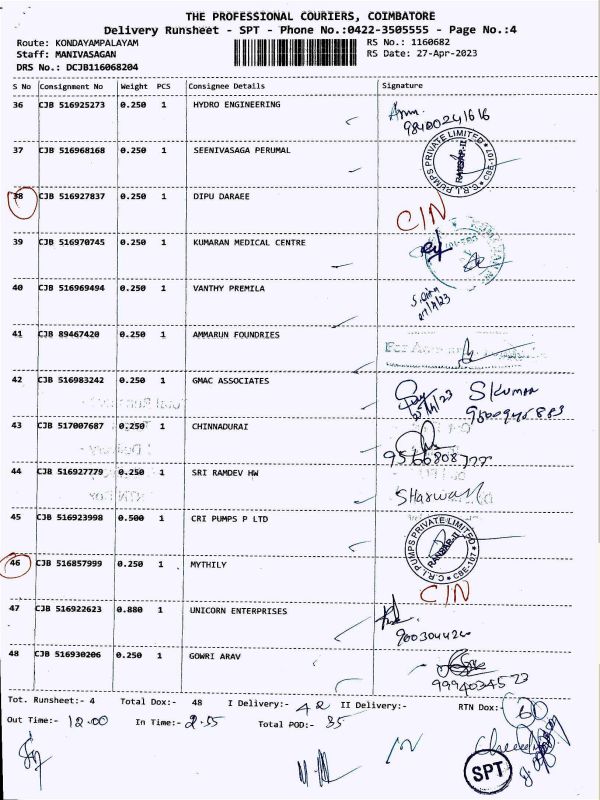 THE PROFESSIONAL COURIERS, COIMBATORE
Delivery Runsheet - SPT - Phone No.:0422-3505555 - Page No.:4
Route: KONDAYAMPALAYAM RS No.: 1160682
Staff: MANIVASAGAN RS Date: 27-Apr-2023
DRS No.: DCJB116068204
S No Consignment No Weight PCS Consignee Details Signature
36 CJB 516925273 0.250 1 HYDRO ENGINEERING
98400241616
37 CJB 516968168 0.250 1 SEENIVASAGA PERUMAL
C.R.I. PUMPS PRIVATE LIMITED CBE-107 RANZAR-II
38 CJB 516927837 0.250 1 DIPU DARAEE
C/N
39 CJB 516970745 0.250 1 KUMARAN MEDICAL CENTRE
40 CJB 516969494 0.250 1 VANTHY PREMILA
27/4/23
41 CJB 89467420 0.250 1 AMMARUN FOUNDRIES
For
42 CJB 516983242 0.250 1 GMAC ASSOCIATES
S KUMAR
43 CJB 517007687 0.250 1 CHINNADURAI
44 CJB 516927779 0.250 1 SRI RAMDEV HW
45 CJB 516923998 0.500 1 CRI PUMPS P LTD
C.R.I. PUMPS PRIVATE LIMITED CBE-107 RANZAR-II
46 CJB 516857999 0.250 1 MYTHILY
C/N
47 CJB 516922623 0.880 1 UNICORN ENTERPRISES
48 CJB 516930206 0.250 1 GOWRI ARAV
Tot. Runsheet:- 4 Total Dox:- 48 I Delivery:- 42 II Delivery:- RTN Dox:-
Out Time:- 12.00 In Time:- 2.55 Total POD:- 35
SPT